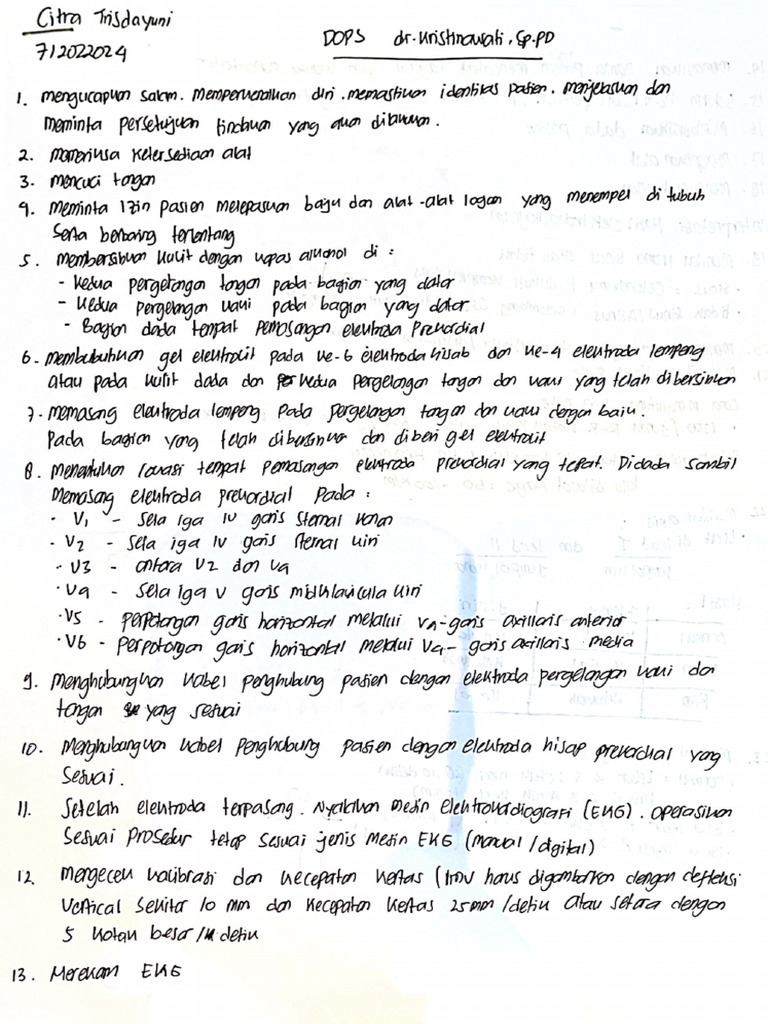 Citra Trisdayuni
712022024
DOPS dr. Kristinawati, Sp.PD
1. Mengucapkan salam. Memperkenalkan diri. memastikan identitas pasien. menjelaskan dan
meminta persetujuan tindakan yang akan dilakukan.
2. Memeriksa ketersediaan alat
3. mencuci tangan
4. Meminta izin pasien melepaskan baju dan alat-alat logam yang menempel di tubuh
serta berbaring terlentang
5. membersihkan kulit dengan kapas alkohol di :
- kedua pergelangan tangan pada bagian yang datar
- kedua pergelangan kaki pada bagian yang datar
- Bagian dada tempat pemasangan elektroda prekordial
6. membubuhkan gel elektrolit pada ke-6 elektroda hisab dan ke-4 elektroda lempeng
atau pada kulit dada dan kedua pergelangan tangan dan kaki yang telah dibersihkan
7. Memasang elektroda lempeng pada pergelangan tangan dan kaki dengan baik.
Pada bagian yang telah dibersihkan dan diberi gel elektrolit
8. Menentukan lokasi tempat pemasangan elektroda prekordial yang tepat. Didada sambil
memasang elektroda prekordial pada :
· V1 - Sela iga IV garis sternal kanan
· V2 - Sela iga IV garis sternal kiri
· V3 - antara V2 dan V4
· V4 - Sela iga V garis midklavicula kiri
· V5 - perpotongan garis horizontal melalui V4-garis axillaris anterior
· V6 - perpotongan garis horizontal melalui V4-garis axillaris media
9. Menghubungkan kabel penghubung pasien dengan elektroda pergelangan kaki dan
tangan yang sesuai
10. Menghubungkan kabel penghubung pasien dengan elektroda hisap prekordial yang
sesuai.
11. Setelah elektroda terpasang. Nyalakan mesin elektrokardiografi (EKG). Operasikan
Sesuai prosedur tetap sesuai jenis mesin EKG (manual/digital)
12. Mengecek kalibrasi dan kecepatan kertas (1mV harus digambarkan dengan defleksi
vertical sekitar 10 mm dan kecepatan kertas 25mm/detik atau setara dengan
5 kotak besar/detik
13. Merekam EKG